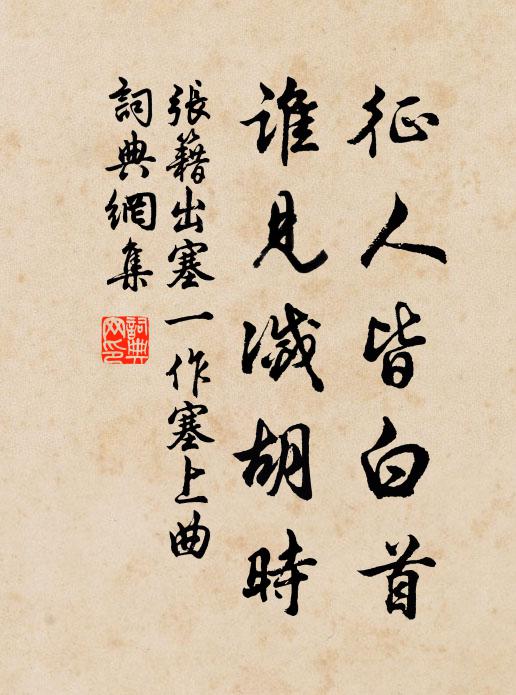 征人皆白首
誰見滅胡時
張籍出塞一作塞上曲
詞典網集
詞典网印